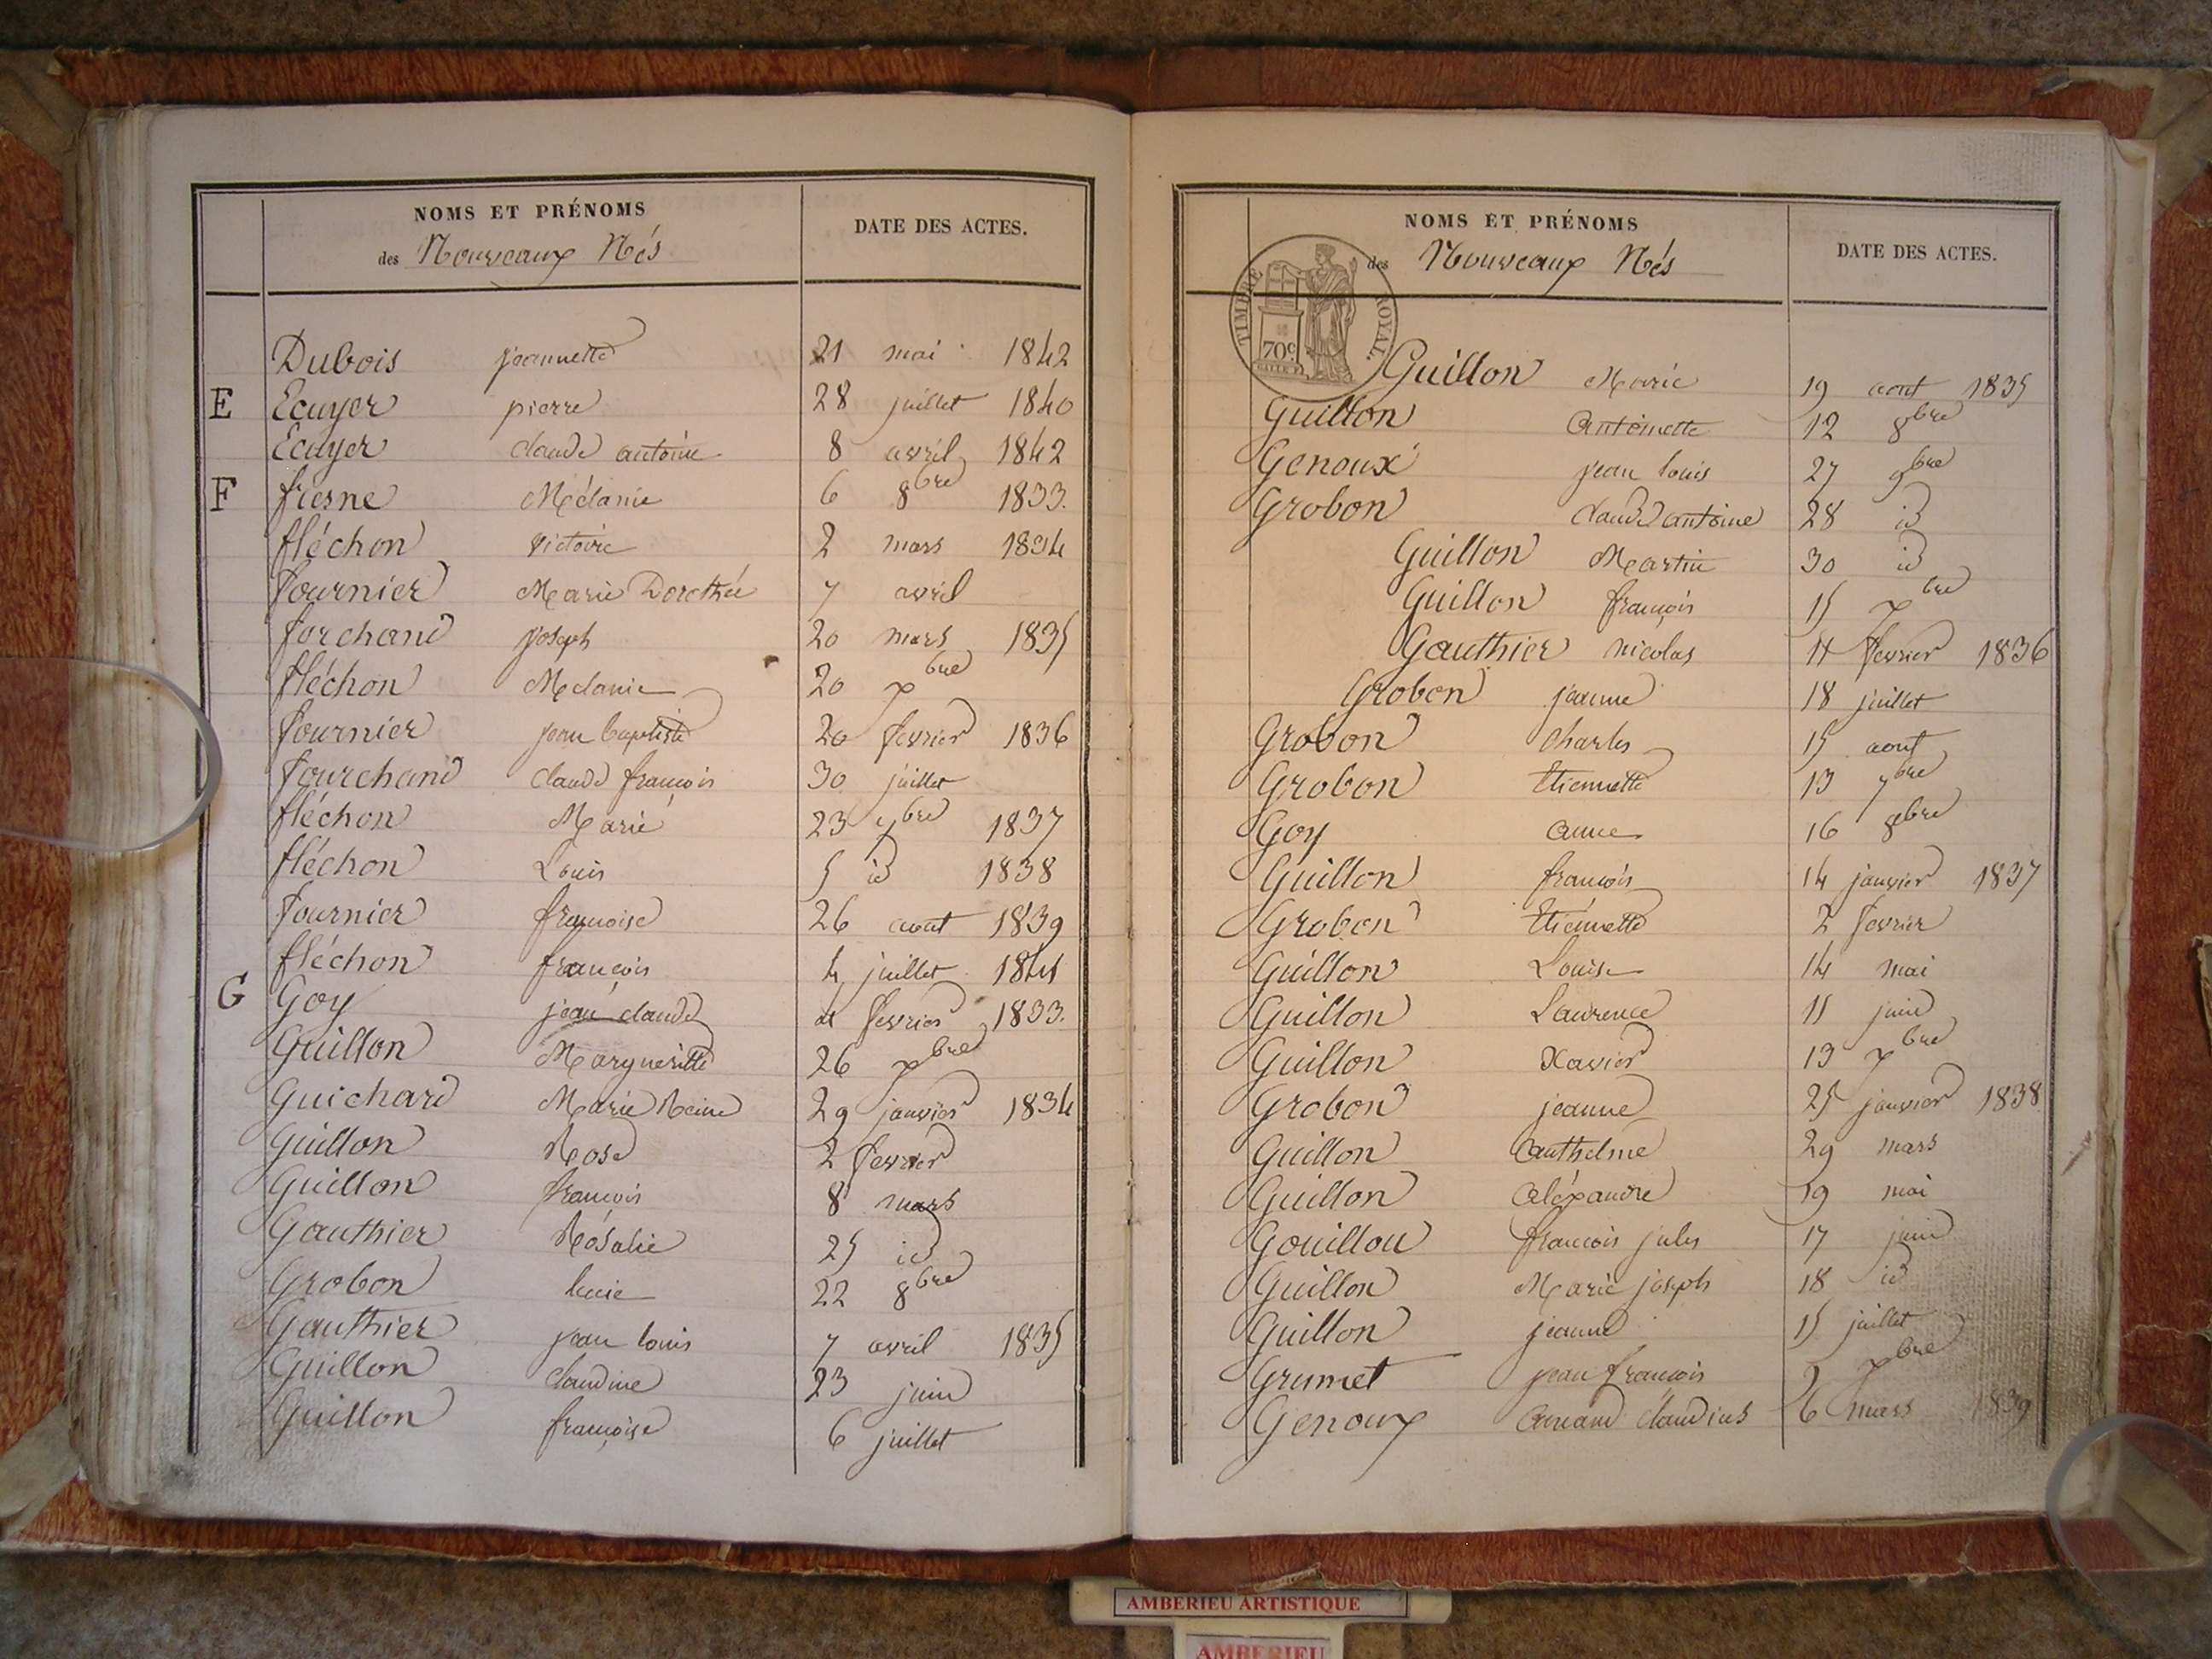 NOMS ET PRÉNOMS
des Nouveaux Nés
DATE DES ACTES.
Dubois jeannette 21 mai 1842
E Ecuyer pierre 28 juillet 1840
Ecuyer claude antoine 8 avril 1842
F fresne Mélanie 6 8bre 1833.
fléchon victoire 2 mars 1834
fournier Marie Dorothée 7 avril
forchand joseph 20 mars 1835
fléchon Melanie 20 xbre
fournier jean baptiste 20 fevrier 1836
fourchand claude françois 30 juillet
fléchon Marie 23 7bre 1837
fléchon Louis 5 id 1838
fournier françoise 26 aout 1839
fléchon françois 4 juillet 1841
G Goy jean claude fevrier 1833.
Guillon Margueritte 26 xbre
Guichard Marie Reine 29 janvier 1834
Guillon Rose 2 fevrier
Guillon françois 8 mars
Gauthier Rosalie 25 id
Grobon lucie 22 8bre
Gauthier jean louis 7 avril 1835
Guillon claudine 23 juin
Guillon françoise 6 juillet
NOMS ET PRÉNOMS
des Nouveaux Nés
DATE DES ACTES.
TIMBRE ROYAL.
70c
Guillon Marie 19 aout 1835
Guillon Antoinette 12 8bre
Genoux jean louis 27 9bre
Grobon claude antoine 28 id
Guillon Martin 30 id
Guillon françois 15 xbre
Gauthier nicolas 11 fevrier 1836
Grobon jeanne 18 juillet
Grobon Charles 15 aout
Grobon Etiennette 13 7bre
Goy anne 16 8bre
Guillon françois 14 janvier 1837
Grobon Etiennette 2 fevrier
Guillon Louise 14 mai
Guillon Laurence 11 juin
Guillon Xavier 13 xbre
Grobon jeanne 25 janvier 1838
Guillon Anthelme 29 mars
Guillon Aléxandre 19 mai
Gouillou françois jules 17 juin
Guillon Marie joseph 18 id
Guillon jeanne 15 juillet
Grumet jean françois 2 xbre
Genoux Armand claudius 6 mars 1839
AMBERIEU ARTISTIQUE
AMBERIEU